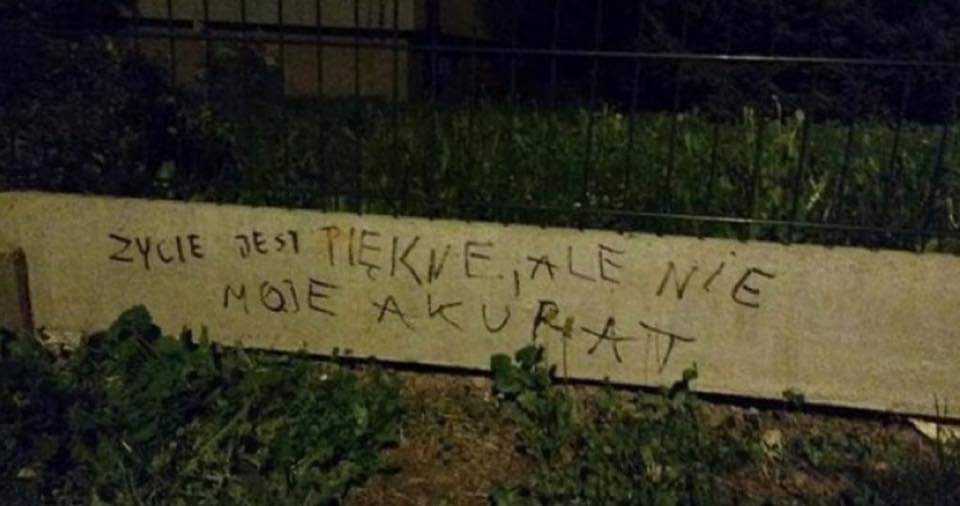 ZYCIE JEST PIĘKNE, ALE NIE
MOJE AKURAT